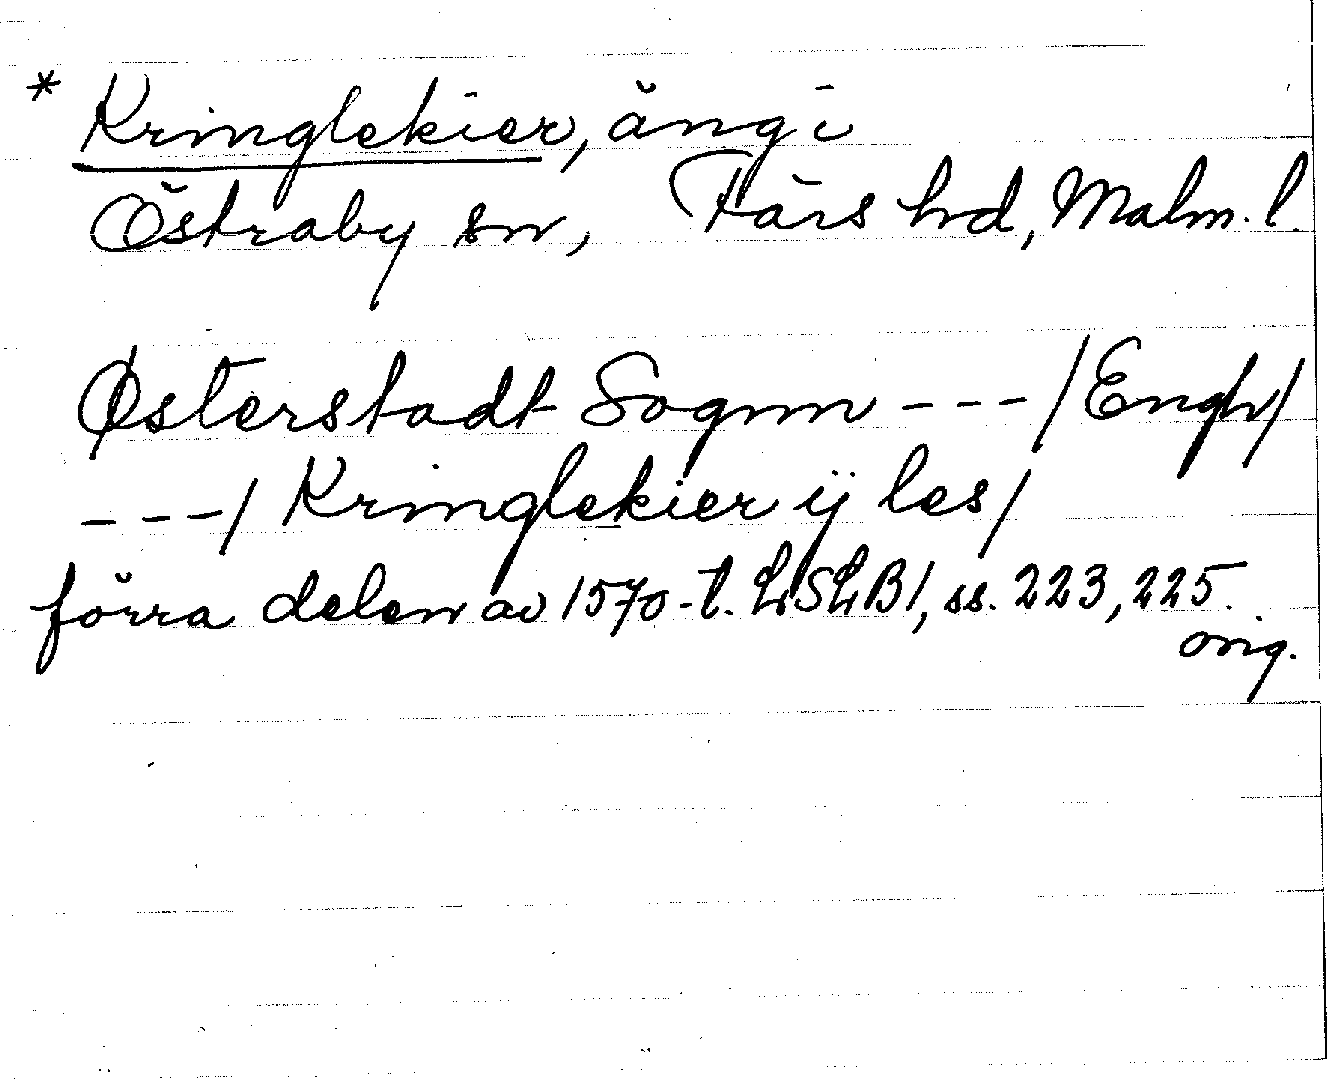 * Kringlekier, äng i
Östraby sn, Färs hd, Malm. l.
Østerstadt Sognn --- / Engh /
--- / Kringlekier ij les /
förra delen av 1570-t. LSLB 1, ss. 223, 225.
orig.